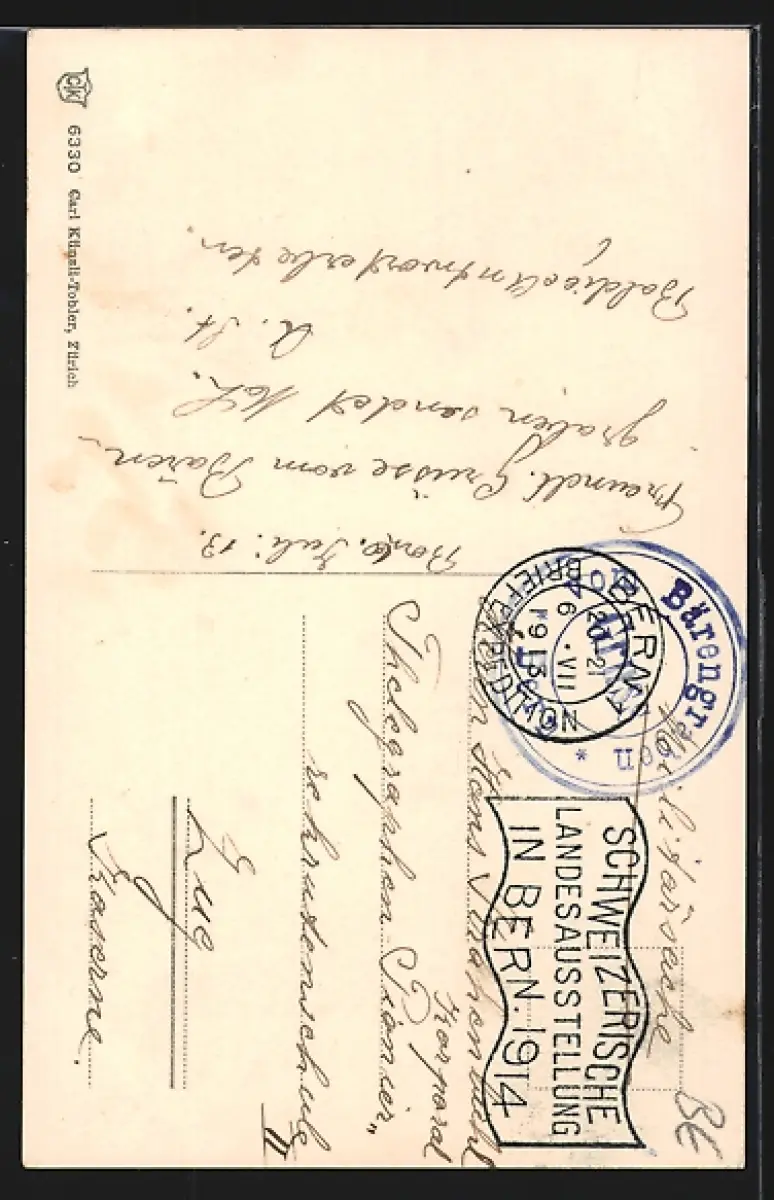 CTK
6330 Carl Künzli-Tobler, Zürich
Juli. 13.
Freundl. Grüsse vom Bären-
graben sendet
A. St.
Baldige Antwort erbeten.
Bärengr
BERN 1
BRIEFEXPEDITION
6. VII
1913
SCHWEIZERISCHE
LANDESAUSSTELLUNG
IN BERN. 1914
Hans
Korporal
Thelegraphen Pionier„
rekrutenschule II
Zug
Kaserne.